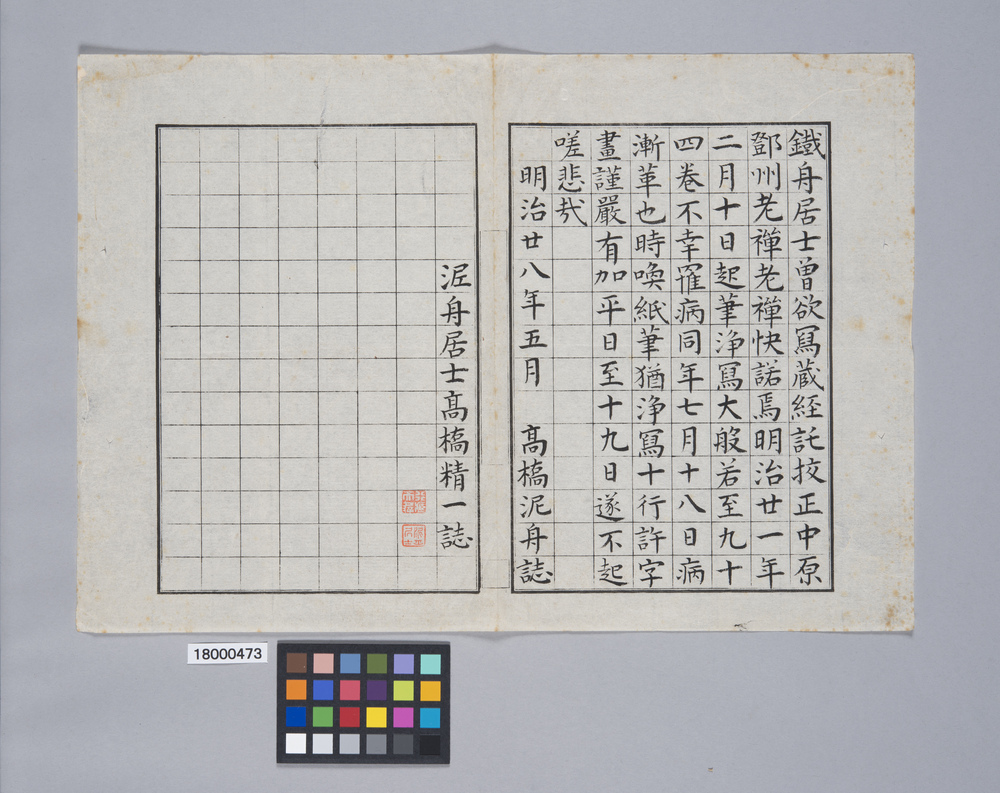 鐵舟居士曾欲冩蔵経託挍正中原
鄧州老禪老禪快諾焉明治廿一年
二月十日起筆浄冩大般若至九十
四巻不幸罹病同年七月十八日病
漸革也時喚紙筆猶浄冩十行許字
畫謹嚴有加平日至十九日遂不起
嗟悲哉
明治廿八年五月　髙槗泥舟誌
泥舟居士髙槗精一誌
18000473